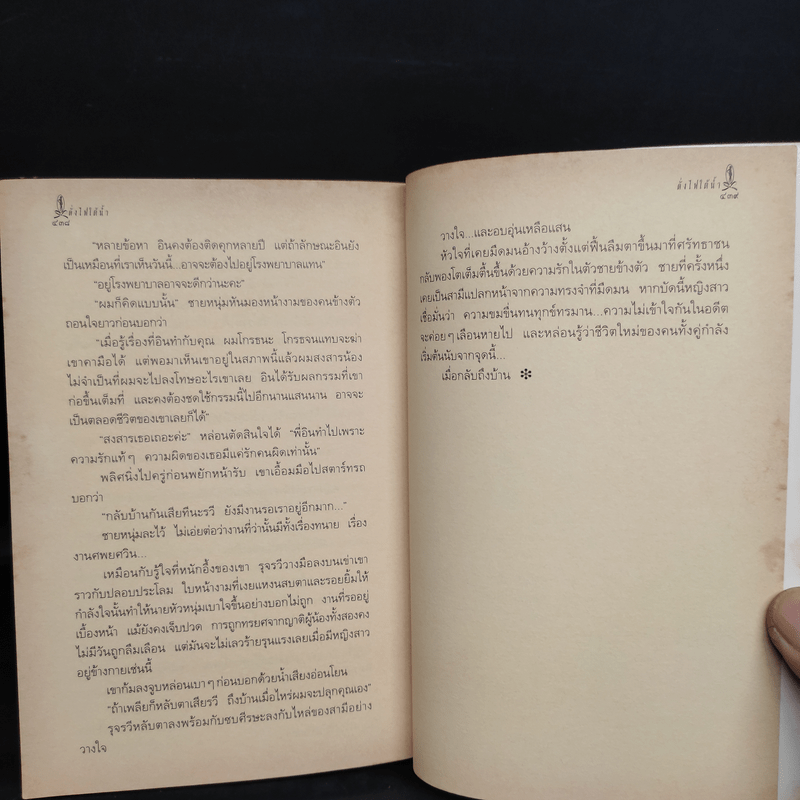 ฝั่งไฟใต้น้ำ
๔๓๘
“หลายข้อหา อินคงต้องติดคุกหลายปี แต่ถ้าลักษณะอินยัง
เป็นเหมือนที่เราเห็นวันนี้...อาจจะต้องไปอยู่โรงพยาบาลแทน”
“อยู่โรงพยาบาลอาจจะดีกว่านะคะ”
“ผมก็คิดแบบนั้น” ชายหนุ่มหันมองหน้างามของคนข้างตัว
ถอนใจยาวก่อนบอกว่า
“เมื่อรู้เรื่องที่อินทำกับคุณ ผมโกรธนะ โกรธจนแทบจะฆ่า
เขาคามือได้ แต่พอมาเห็นเขาอยู่ในสภาพนี้แล้วผมสงสารน้อง
ไม่จำเป็นที่ผมจะไปลงโทษอะไรเขาเลย อินได้รับผลกรรมที่เขา
ก่อขึ้นเต็มที่ และคงต้องชดใช้กรรมนี้ไปอีกนานแสนนาน อาจจะ
เป็นตลอดชีวิตของเขาเลยก็ได้”
“สงสารเธอเถอะค่ะ” หล่อนตัดสินใจได้ “พี่อินทำไปเพราะ
ความรักแท้ๆ ความผิดของเธอมีแค่รักคนผิดเท่านั้น”
พลิศนิ่งไปครู่ก่อนพยักหน้ารับ เขาเอื้อมมือไปสตาร์ทรถ
บอกว่า
“กลับบ้านกันเสียทีนะรวี ยังมีงานรอเราอยู่อีกมาก...”
ชายหนุ่มละไว้ ไม่เอ่ยต่อว่างานที่ว่านั้นมีทั้งเรื่องทนาย เรื่อง
งานศพยศวิน...
เหมือนกับรู้ใจที่หนักอึ้งของเขา รุจรวีวางมือลงบนเข่าเขา
ราวกับปลอบประโลม ใบหน้างามที่เงยแหงนสบตาและรอยยิ้มให้
กำลังใจนั้นทำให้นายหัวหนุ่มเบาใจขึ้นอย่างบอกไม่ถูก งานที่รออยู่
เบื้องหน้า แม้ยังคงเจ็บปวด การถูกทรยศจากญาติผู้น้องทั้งสองคง
ไม่มีวันถูกลืมเลือน แต่มันจะไม่เลวร้ายรุนแรงเลยเมื่อมีหญิงสาว
อยู่ข้างกายเช่นนี้
เขาก้มลงจูบหล่อนเบาๆ ก่อนบอกด้วยน้ำเสียงอ่อนโยน
“ถ้าเพลียก็หลับตาเสียรวี ถึงบ้านเมื่อไหร่ผมจะปลุกคุณเอง”
รุจรวีหลับตาลงพร้อมกับซบศีรษะลงกับไหล่ของสามีอย่าง
วางใจ
ฝั่งไฟใต้น้ำ
๔๓๙
วางใจ...และอบอุ่นเหลือแสน
หัวใจที่เคยมืดมนอ้างว้างตั้งแต่ฟื้นลืมตาขึ้นมาที่ศรัทธาชน
กลับพองโตเต็มตื้นขึ้นด้วยความรักในตัวชายข้างตัว ชายที่ครั้งหนึ่ง
เคยเป็นสามีแปลกหน้าจากความทรงจำที่มืดมน หากบัดนี้หญิงสาว
เชื่อมั่นว่า ความขมขื่นทนทุกข์ทรมาน...ความไม่เข้าใจกันในอดีต
จะค่อยๆ เลือนหายไป และหล่อนรู้ว่าชีวิตใหม่ของคนทั้งคู่กำลัง
เริ่มต้นนับจากจุดนี้...
เมื่อกลับถึงบ้าน ✻